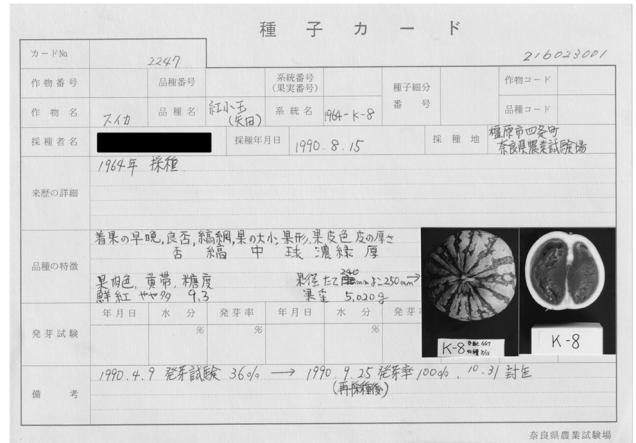 種子カード
カードNo. 2247
216023001
作物番号 品種番号 系統番号(果実番号) 種子細分番号 作物コード
作物名 スイカ 品種名 紅小玉(矢田) 系統名 1964-K-8 品種コード
採種者名 採種年月日 1990.8.15 採種地 橿原市四条町 奈良県農業試験場
来歴の詳細 1964年 採種
品種の特徴
着果の早晩,良否,縞綱,果の大小,果形,果皮色,皮の厚さ
否 縞 中 球 濃緑 厚
果肉色,黄帯,糖度
鮮紅 やや多 9.3
果径 たて 240mm よこ 250mm→
果重 5,020g
K-8
K-8
年月日 水分 発芽率 年月日 水分 発芽率
発芽試験 % % %
備考 1990.4.9 発芽試験 36% → 1990.9.25 発芽率100%. 10.31 封缶
(再採種後)
奈良県農業試験場